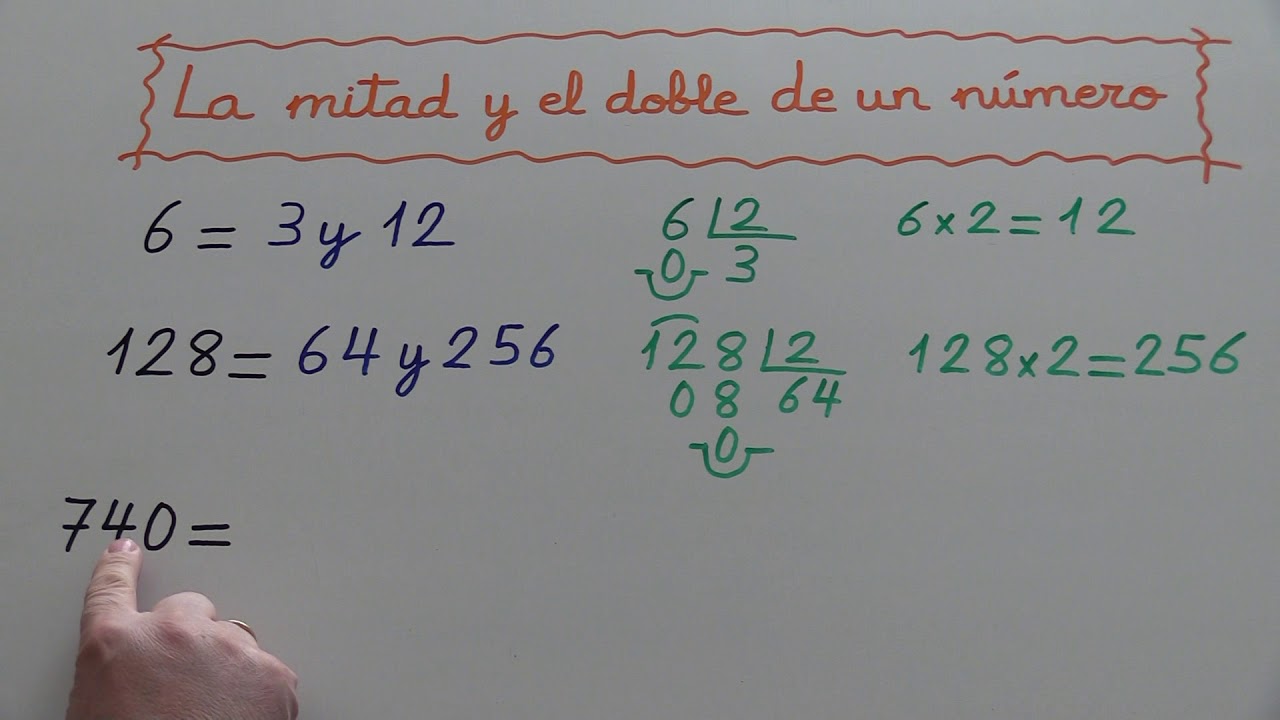 La mitad y el doble de un número
6 = 3 y 12 6 2 6 x 2 = 12
0 3
128 = 64 y 256 128 2 128 x 2 = 256
08 64
0
740 =